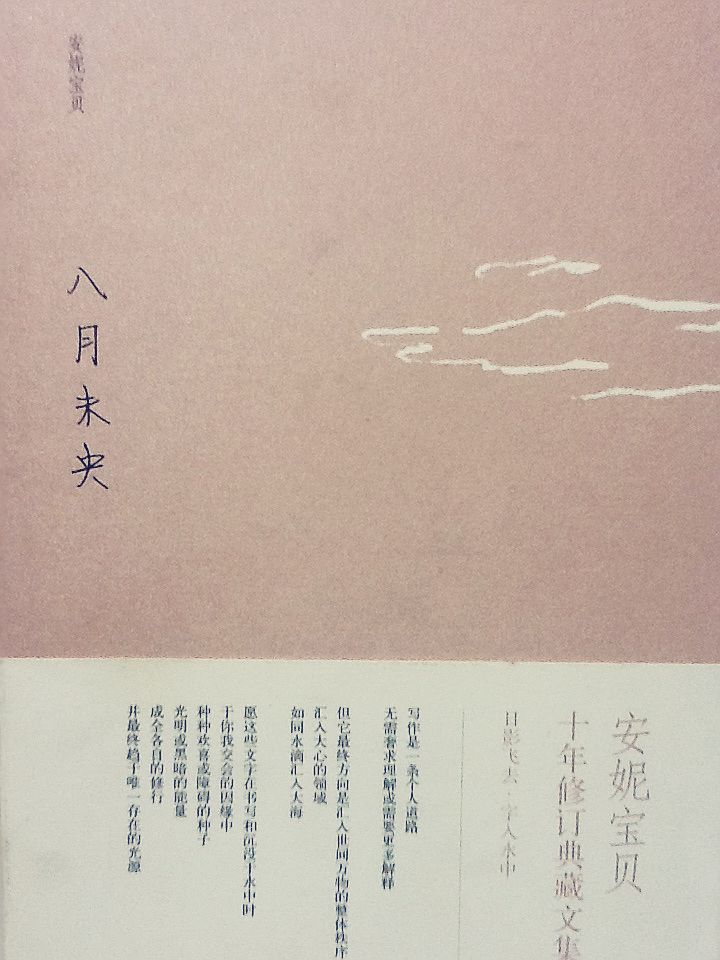 安妮宝贝
八月未央
安妮宝贝
十年修订典藏文集
日影飞去·字入水中
写作是一条个人道路
无需奢求理解或需要更多解释
但它最终方向是汇入世间万物的整体秩序
汇入大心的领域
如同水滴汇入大海
愿这些文字在书写和沉没于水中时
于你我交会的因缘中
种种欢喜或障碍的种子
光明或黑暗的能量
成全各自的修行
并最终趋于唯一存在的光源